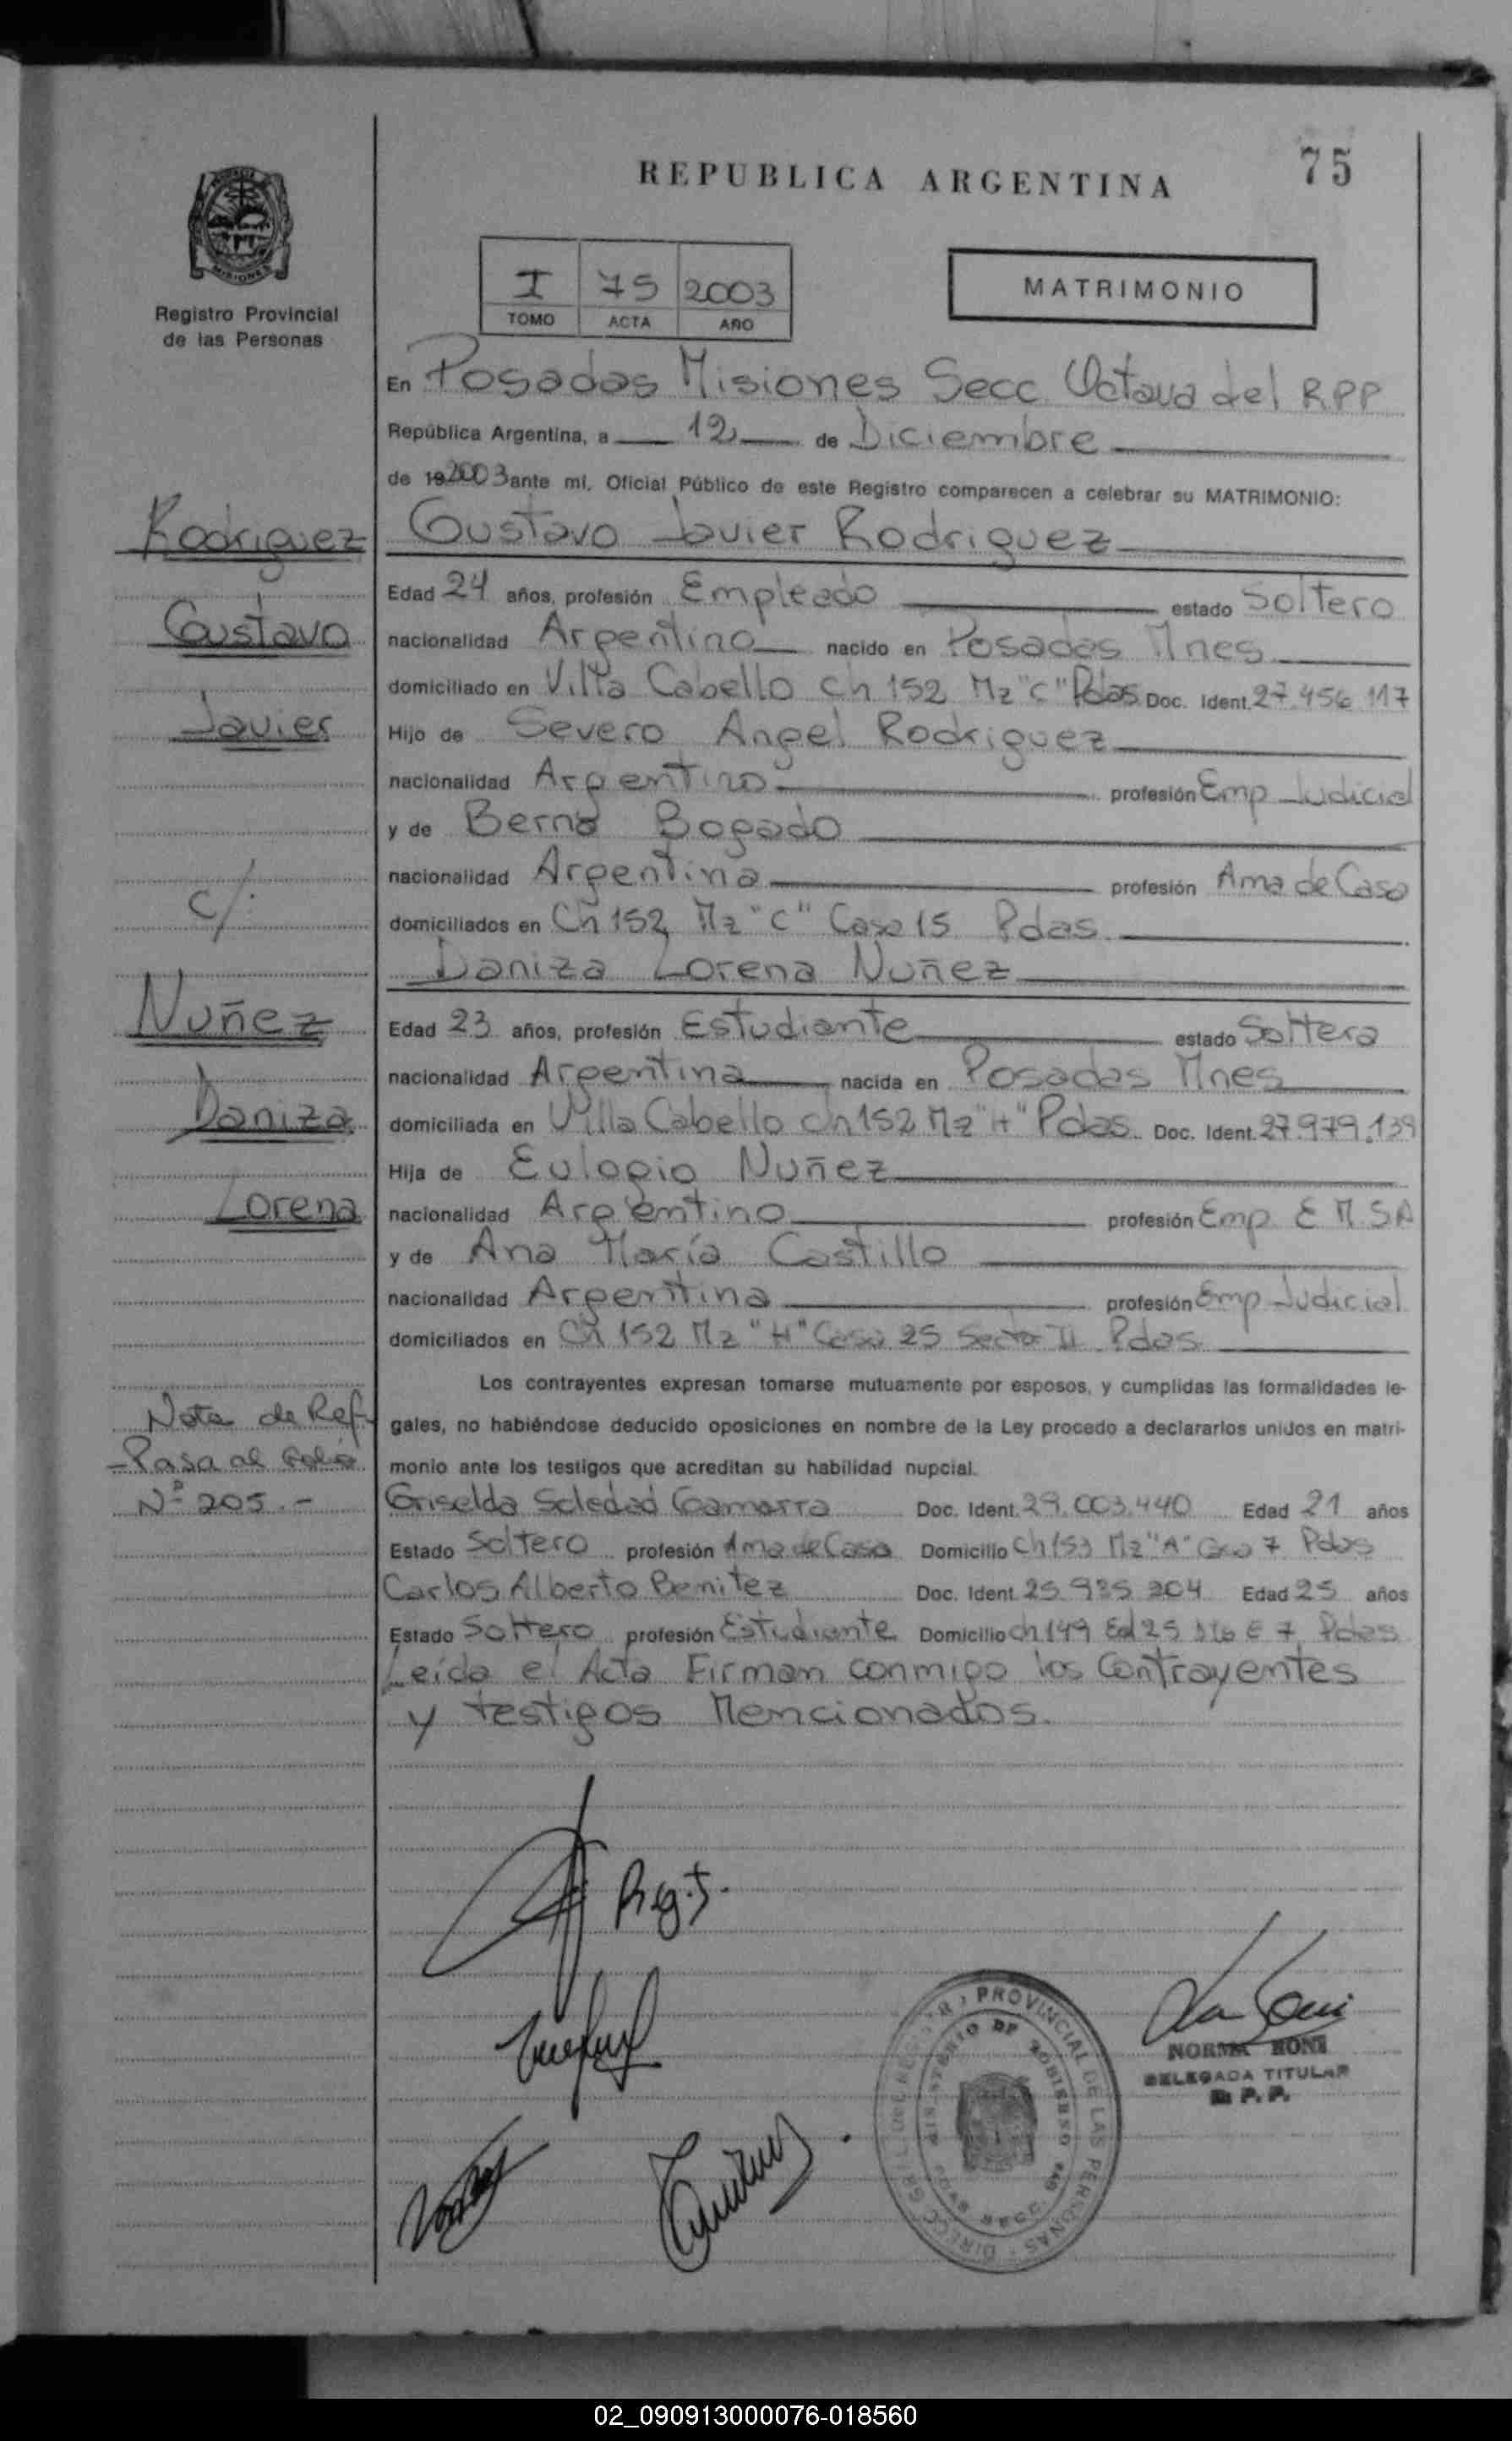 REPUBLICA ARGENTINA
75
MISIONES
Registro Provincial
de las Personas
I 75 2003
TOMO ACTA AÑO
MATRIMONIO
En Posadas Misiones Secc Octava del RPP
República Argentina, a 12 de Diciembre
de 192003 ante mí, Oficial Público de este Registro comparecen a celebrar su MATRIMONIO:
Rodriguez
Gustavo Javier Rodriguez
Edad 24 años, profesión Empleado estado Soltero
Gustavo
nacionalidad Argentino nacido en Posadas Mnes
domiciliado en Villa Cabello Ch 152 Mz "C" Pdas Doc. Ident. 27.456.117
Javier
Hijo de Severo Angel Rodriguez
nacionalidad Argentino profesión Emp Judicial
y de Berna Bogado
nacionalidad Argentina profesión Ama de Casa
c/.
domiciliados en Ch 152 Mz "C" Casa 15 Pdas
Daniza Lorena Nuñez
Nuñez
Edad 23 años, profesión Estudiante estado Soltera
nacionalidad Argentina nacida en Posadas Mnes
Daniza
domiciliada en Villa Cabello Ch 152 Mz "H" Pdas Doc. Ident. 27.979.139
Hija de Eulogio Nuñez
Lorena
nacionalidad Argentino profesión Emp E M S A
y de Ana María Castillo
nacionalidad Argentina profesión Emp Judicial
domiciliados en Ch 152 Mz "H" Casa 25 Sector II Pdas
Los contrayentes expresan tomarse mutuamente por esposos, y cumplidas las formalidades le-
Nota de Ref.
gales, no habiéndose deducido oposiciones en nombre de la Ley procedo a declararlos unidos en matri-
-Pasa al folio
monio ante los testigos que acreditan su habilidad nupcial.
Nº 205.-
Griselda Soledad Gamarra Doc. Ident. 29.003.440 Edad 21 años
Estado Soltero profesión Ama de Casa Domicilio Ch 153 Mz "A" Casa 7 Pdas
Carlos Alberto Benitez Doc. Ident. 25 935 204 Edad 25 años
Estado Soltero profesión Estudiante Domicilio Ch 149 Ed 25 7 Pdas
Leída el Acta Firman conmigo los Contrayentes
y testigos Mencionados.
NORMA
DELEGADA TITULAR
R. P. P.
DIRECC. GRL. DEL REGISTR. PROVINCIAL DE LAS PERSONAS
MINISTERIO DE GOBIERNO
PDAS SECC. 8va
02_090913000076-018560